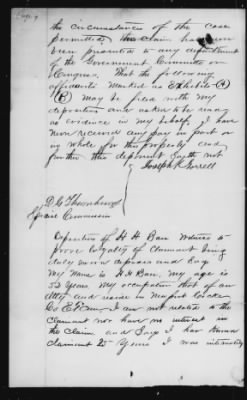 the circumstances of the case
permitted, this claim has never
been presented to any department
of the Government Committee or
Congress. That the following
affidavits Marked as Exhibits (A)
(B) may be filed with my
deposition and asked to be used
as evidence in my behalf. I have
never received any pay in part or
in whole for this property and
further this deponent sayth not
Joseph R Gorrell
D. G. Thornburg
Special Commissioner
Deposition of H. H. Baer Witness to
prove loyalty of Claimant being
duly sworn deposes and Says
My Name is H H Baer. my age is
52 Years. My occupation that of an
Atty and reside in Newport Cocke
Co E Tenn. I am not related to the
Claimant nor have no interest in
the Claim and Says I have known
Claimant 25 Years I was intimately